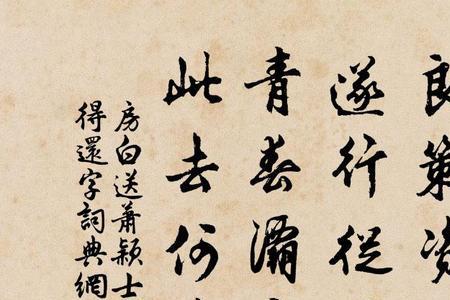 良策資
遂行從
青春灞
此去何
房白送蕭穎士
得還字詞典網